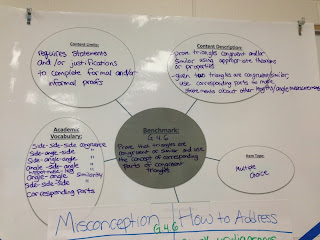 Content Limits:
requires statements
and/or justifications
to complete formal and/or
informal proofs
Content Description:
prove triangles congruent and/or
similar using appropriate theorems
or properties
given two triangles are congruent/similar,
use corresponding parts to make
statements about other lengths/angle measures
Academic
Vocabulary:
Side-side-side congruence
Side-angle-side "
Side-angle-angle "
Angle-side-angle "
Hypotenuse-leg "
Angle-angle Similarity
Side-Side-Side "
Corresponding Parts
Benchmark:
G.4.6
Prove that triangles are
congruent or similar and use
the concept of corresponding
parts of congruent
triangles
Item Type:
Multiple
Choice
Misconception G.4.6 How to Address